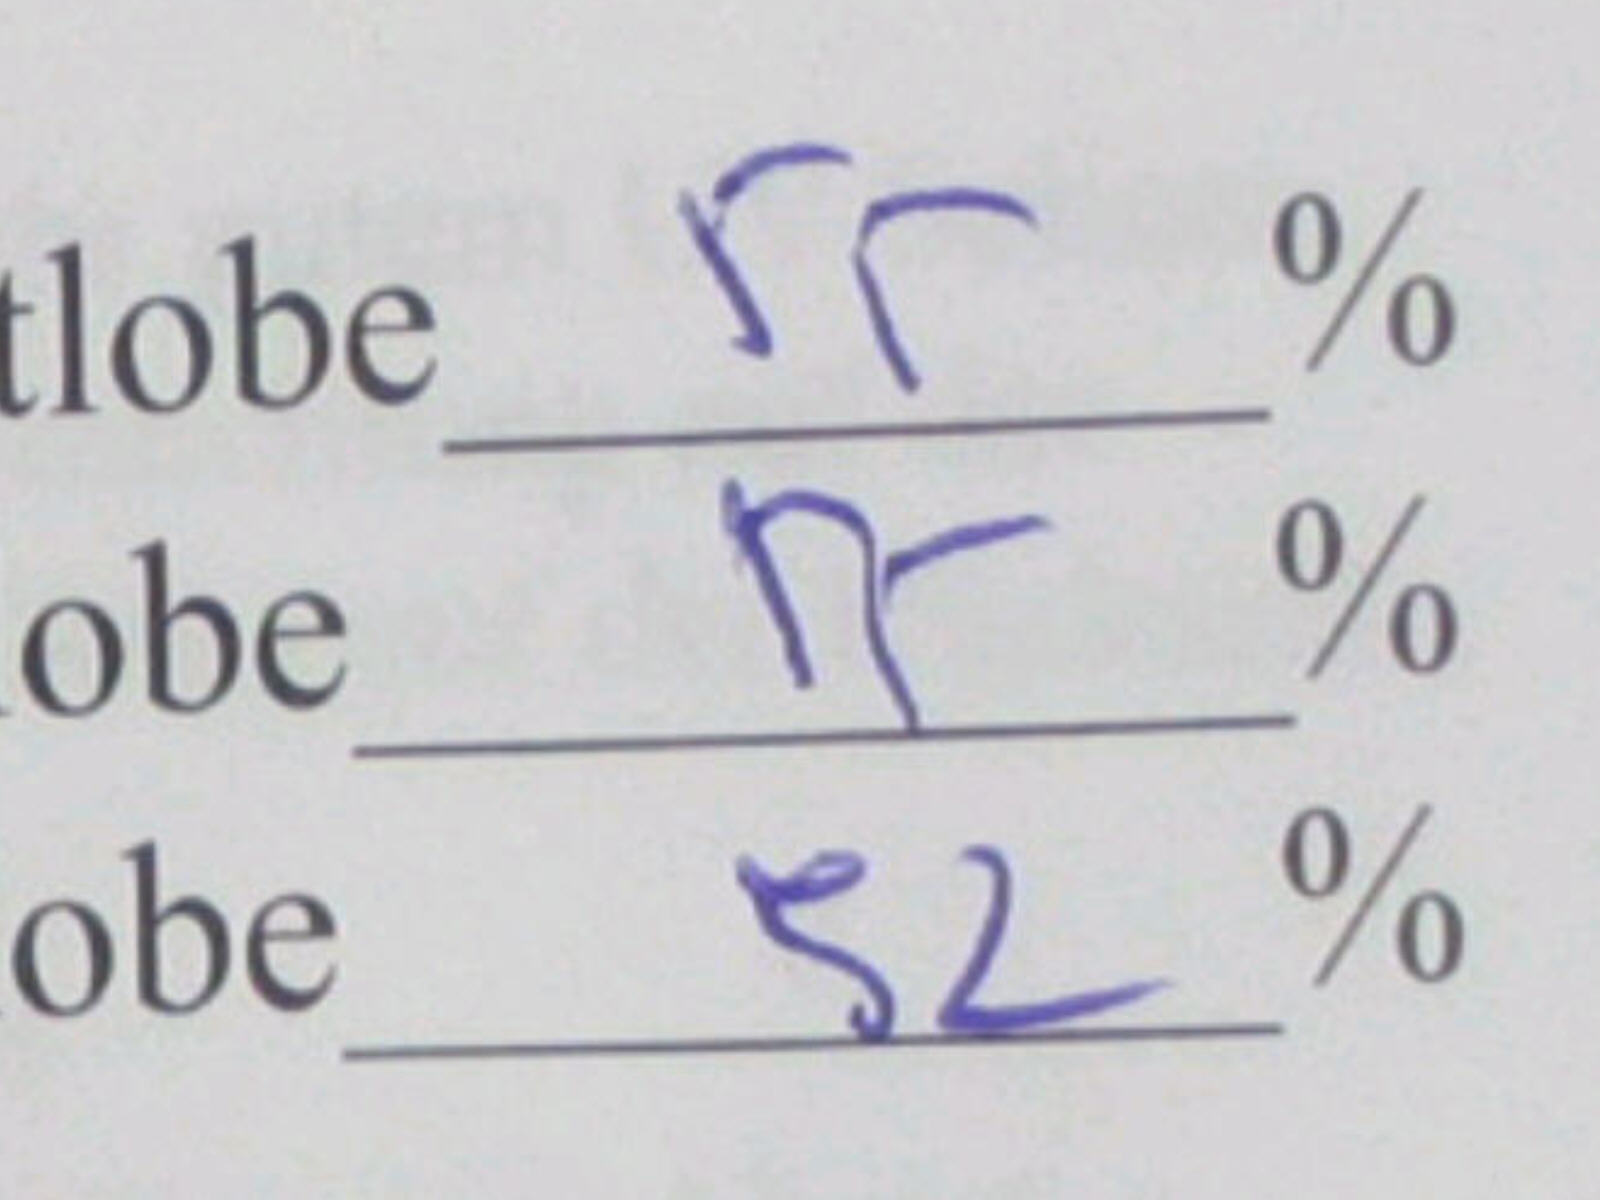 tlobe 55 %
lobe %
lobe 52 %